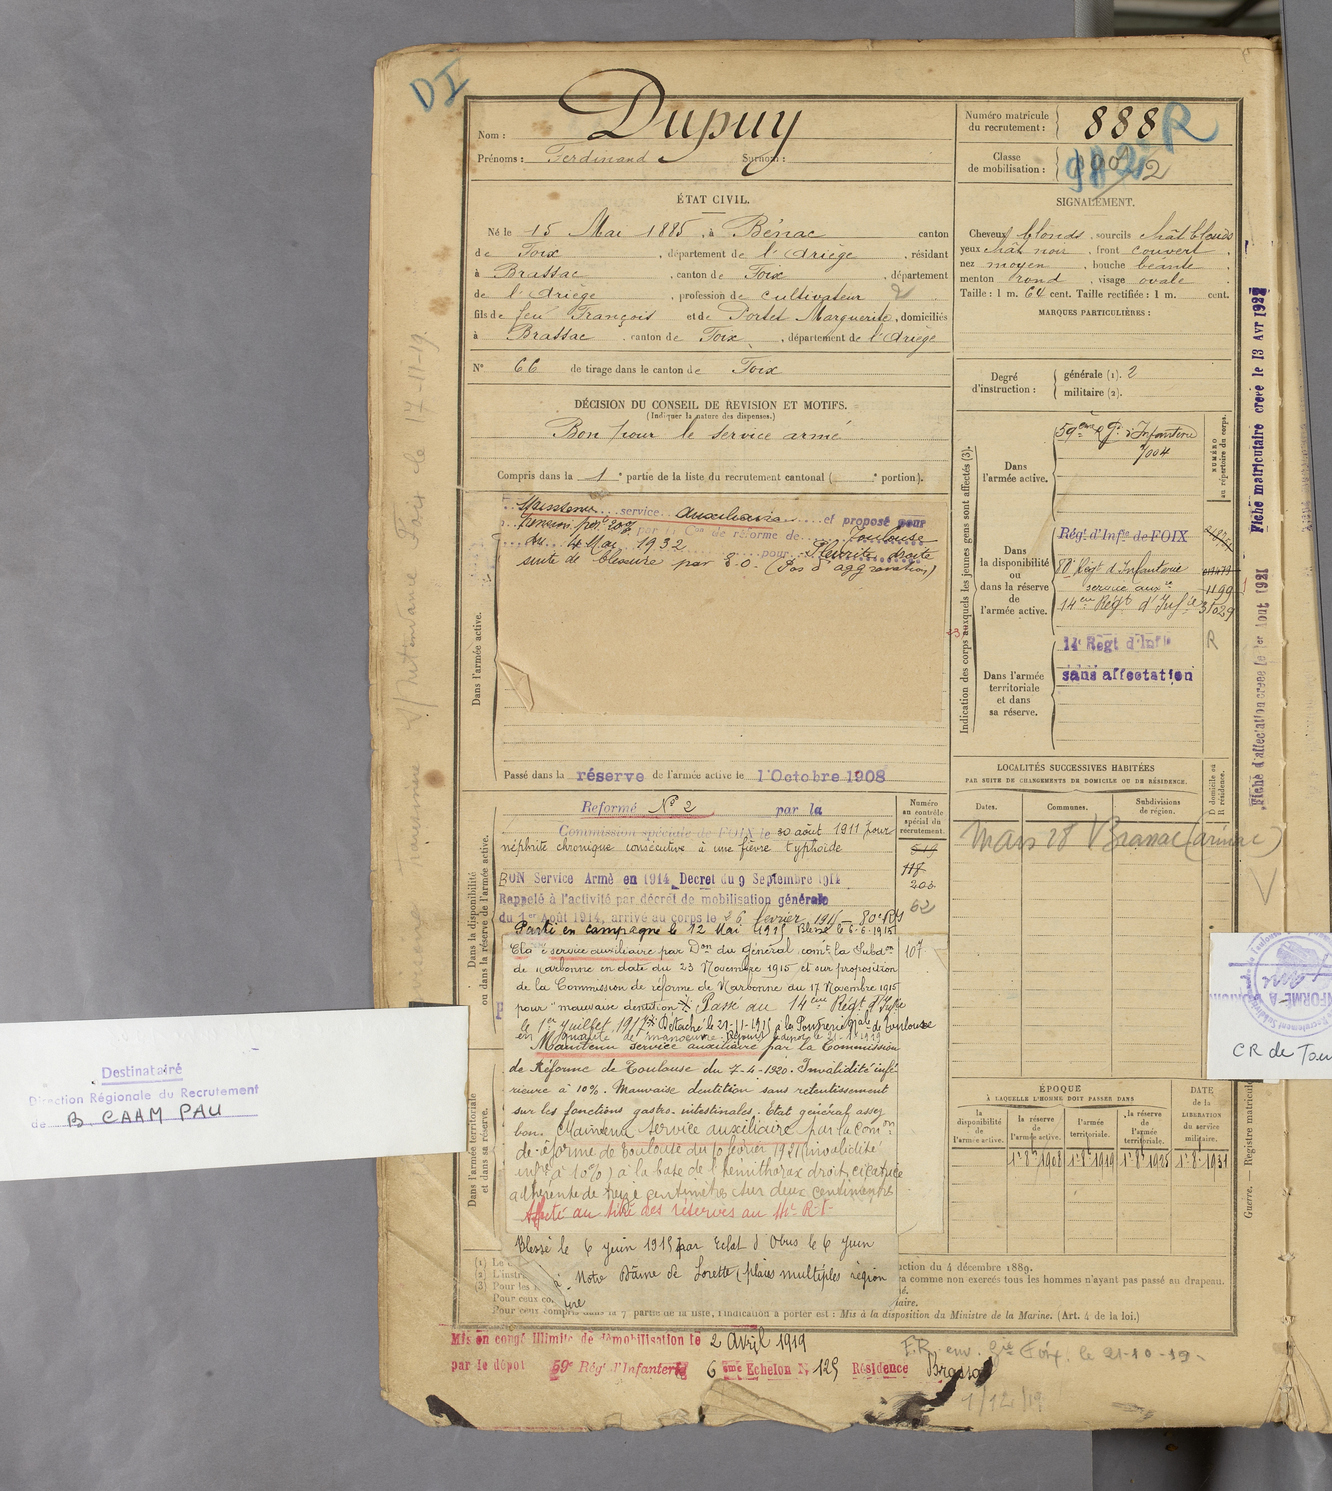 DI
Nom : Dupuy
Prénoms : Ferdinand Surnom :
ÉTAT CIVIL.
Né le 15 Mai 1885, à Bénac canton
de Foix, département de l'Ariège, résidant
à Brassac, canton de Foix, département
de l'Ariège, profession de cultivateur 2
fils de feu François et de Portet Marguerite, domiciliés
à Brassac, canton de Foix, département de l'Ariège
N° 66 de tirage dans le canton de Foix
DÉCISION DU CONSEIL DE REVISION ET MOTIFS.
(Indiquer la nature des dispenses.)
Bon pour le service armé
Compris dans la 1e partie de la liste du recrutement cantonal ( e portion).
Numéro matricule du recrutement : 888 R
Classe de mobilisation : 1902
SIGNALEMENT.
Cheveux blonds, sourcils chât blonds
yeux chât noir, front couvert,
nez moyen, bouche béante
menton rond, visage ovale
Taille : 1 m. 64 cent. Taille rectifiée : 1 m. cent.
MARQUES PARTICULIÈRES :
Degré d'instruction : générale (1). 2
militaire (2).
Dans l'armée active.
Maintenu service auxiliaire et proposé pour
pension per. 20% par la Con de réforme de Toulouse
du 4 Mai 1932 pour Pleurite droite
suite de blessure par E.O. (Pas d'aggravation)
Passé dans la réserve de l'armée active le 1er Octobre 1908
Indication des corps auxquels les jeunes gens sont affectés (3).
NUMÉRO au répertoire du corps.
Dans l'armée active.
59ème Rgt d'Infanterie
1004
Dans la disponibilité ou dans la réserve de l'armée active.
Régt d'Infie de FOIX
80 Régt d'Infanterie
service auxre 1199
14eme Régt d'Infie 31029
14e Régt d'Infie R
Dans l'armée territoriale et dans sa réserve.
sans affectation
Fiche d'affectation créée le 1er Aout 1921
Fiche matriculaire créée le 13 Avr 1927
LOCALITÉS SUCCESSIVES HABITÉES
PAR SUITE DE CHANGEMENTS DE DOMICILE OU DE RÉSIDENCE.
Dates. Communes. Subdivisions de région. D domicile ou R résidence.
Mars 28 Brassac
Dans la disponibilité ou dans la réserve de l'armée active.
Numéro au contrôle spécial du recrutement.
Reformé N° 2 par la
Commission spéciale de FOIX le 30 août 1911 pour
néphrite chronique consécutive à une fièvre typhoïde
519
118
203
62
BON Service Armé en 1914 Decret du 9 Septembre 1914
Rappelé à l'activité par décret de mobilisation générale
du 1er Août 1914, arrivé au corps le 26 février 1915 - 80e RI
Parti en campagne le 12 Mai 1915 Blessé le 6-6-1915
Classé service auxiliaire par Don du Général comt la Subdon 107
de Narbonne en date du 23 Novembre 1915 et sur proposition
de la Commission de réforme de Narbonne du 17 Novembre 1915
pour "mauvaise dentition" Passé au 14eme Régt d'Infie
le 1er juillet 1917 Détaché le 21-11-1915 à la Poudrerie gale de Toulouse
en qualité de manœuvre
Maintenu service auxiliaire par la Commission
de Réforme de Toulouse du 7-4-1920. Invalidité infé
rieure à 10%. Mauvaise dentition sans retentissement
sur les fonctions gastro-intestinales. Etat général assez
bon. Maintenu service auxiliaire par la Comon
de réforme de Toulouse du 10 février 1921 (invalidité
infre à 10%) à la base de l'hémithorax droit, cicatrice
adhérente de treize centimètres sur deux centimètres
Affecté au titre des réserves au 14e R.I.
Blessé le 6 juin 1915 par Eclat d'Obus le 6 Juin
à Notre Dâme de Lorette (plaies multiples région
Dans l'armée territoriale et dans sa réserve.
ÉPOQUE
À LAQUELLE L'HOMME DOIT PASSER DANS
DATE de la LIBÉRATION du service militaire.
la disponibilité de l'armée active.
la réserve de l'armée active.
l'armée territoriale.
la réserve de l'armée territoriale.
1er 8bre 1908 1er 8 1919 1er 8 1925 1er 8 1931
Guerre. — Registre matricule
uction du 4 décembre 1889.
ra comme non exercés tous les hommes n'ayant pas passé au drapeau.
Pour ceux compris dans la 7e partie de la liste, l'indication à porter est : Mis à la disposition du Ministre de la Marine. (Art. 4 de la loi.)
Mis en congé illimité de démobilisation le 2 Avril 1919
par le dépôt 59e Régt d'Infanterie 6eme Echelon N° 125 Résidence Brassac
F.R. env. Foix, le 21-10-19
1/12/19
Foix le 17-11-19.
Destinataire
Direction Régionale du Recrutement
de B CAAM PAU
CR de Tou